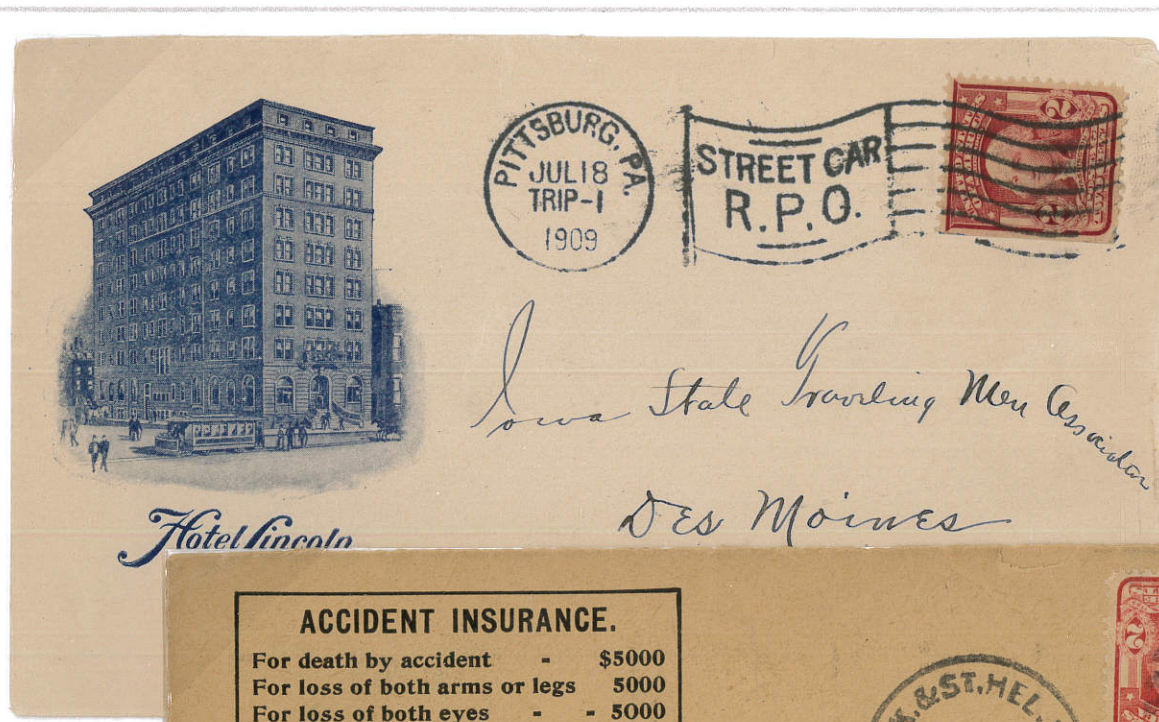 PITTSBURG, PA.
JUL 18
TRIP-1
1909
STREET CAR
R.P.O.
2 2
Iowa State Traveling Men Association
Des Moines
Hotel Lincoln
ACCIDENT INSURANCE.
For death by accident - $5000
For loss of both arms or legs 5000
For loss of both eyes - - 5000
& ST. HEL.
2